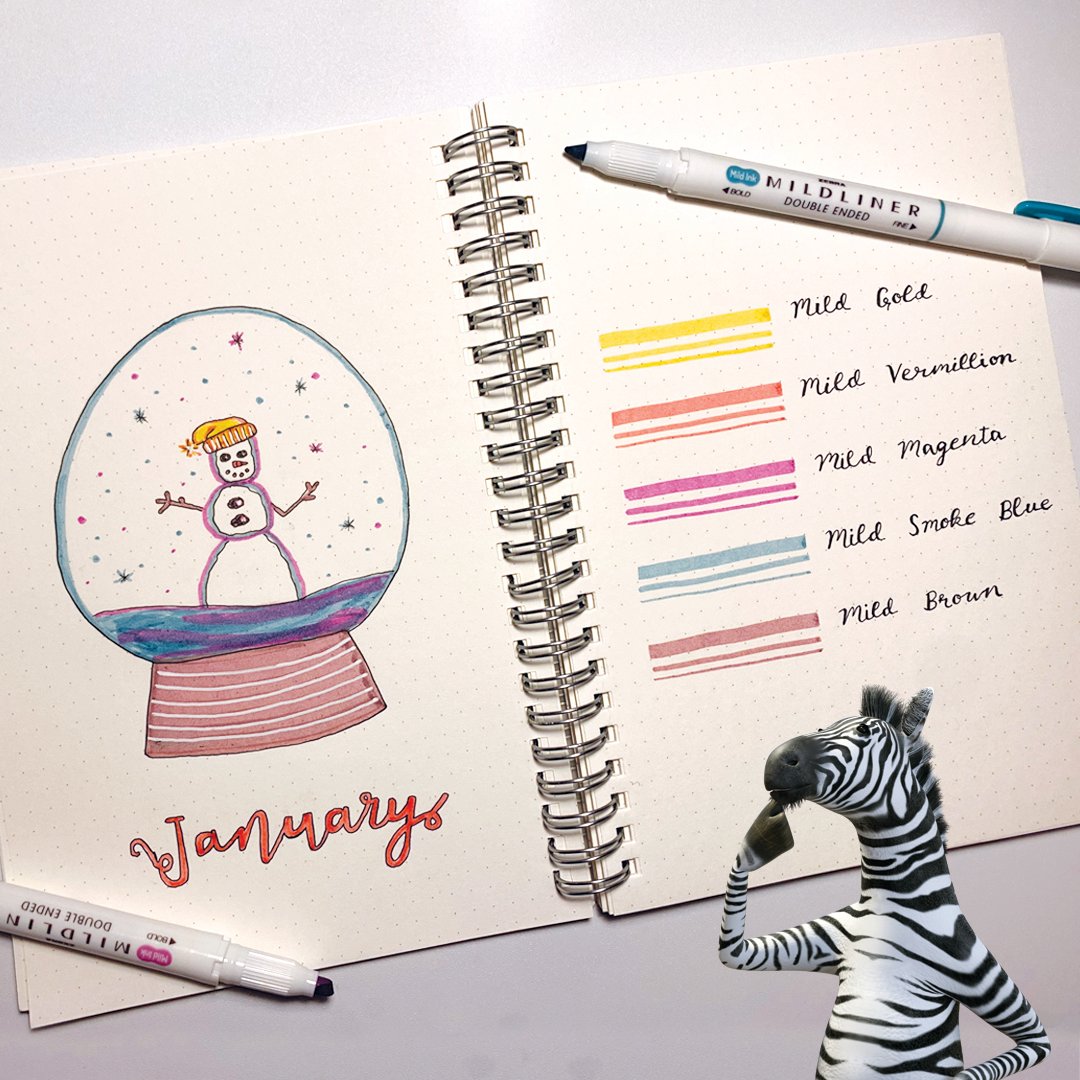 January
MILDLIN
DOUBLE ENDED
Mild Ink
◀BOLD
Mild Ink
ZEBRA
MILDLINER
DOUBLE ENDED
◀BOLD
FINE▶
Mild Gold
Mild Vermillion
Mild Magenta
Mild Smoke Blue
Mild Brown